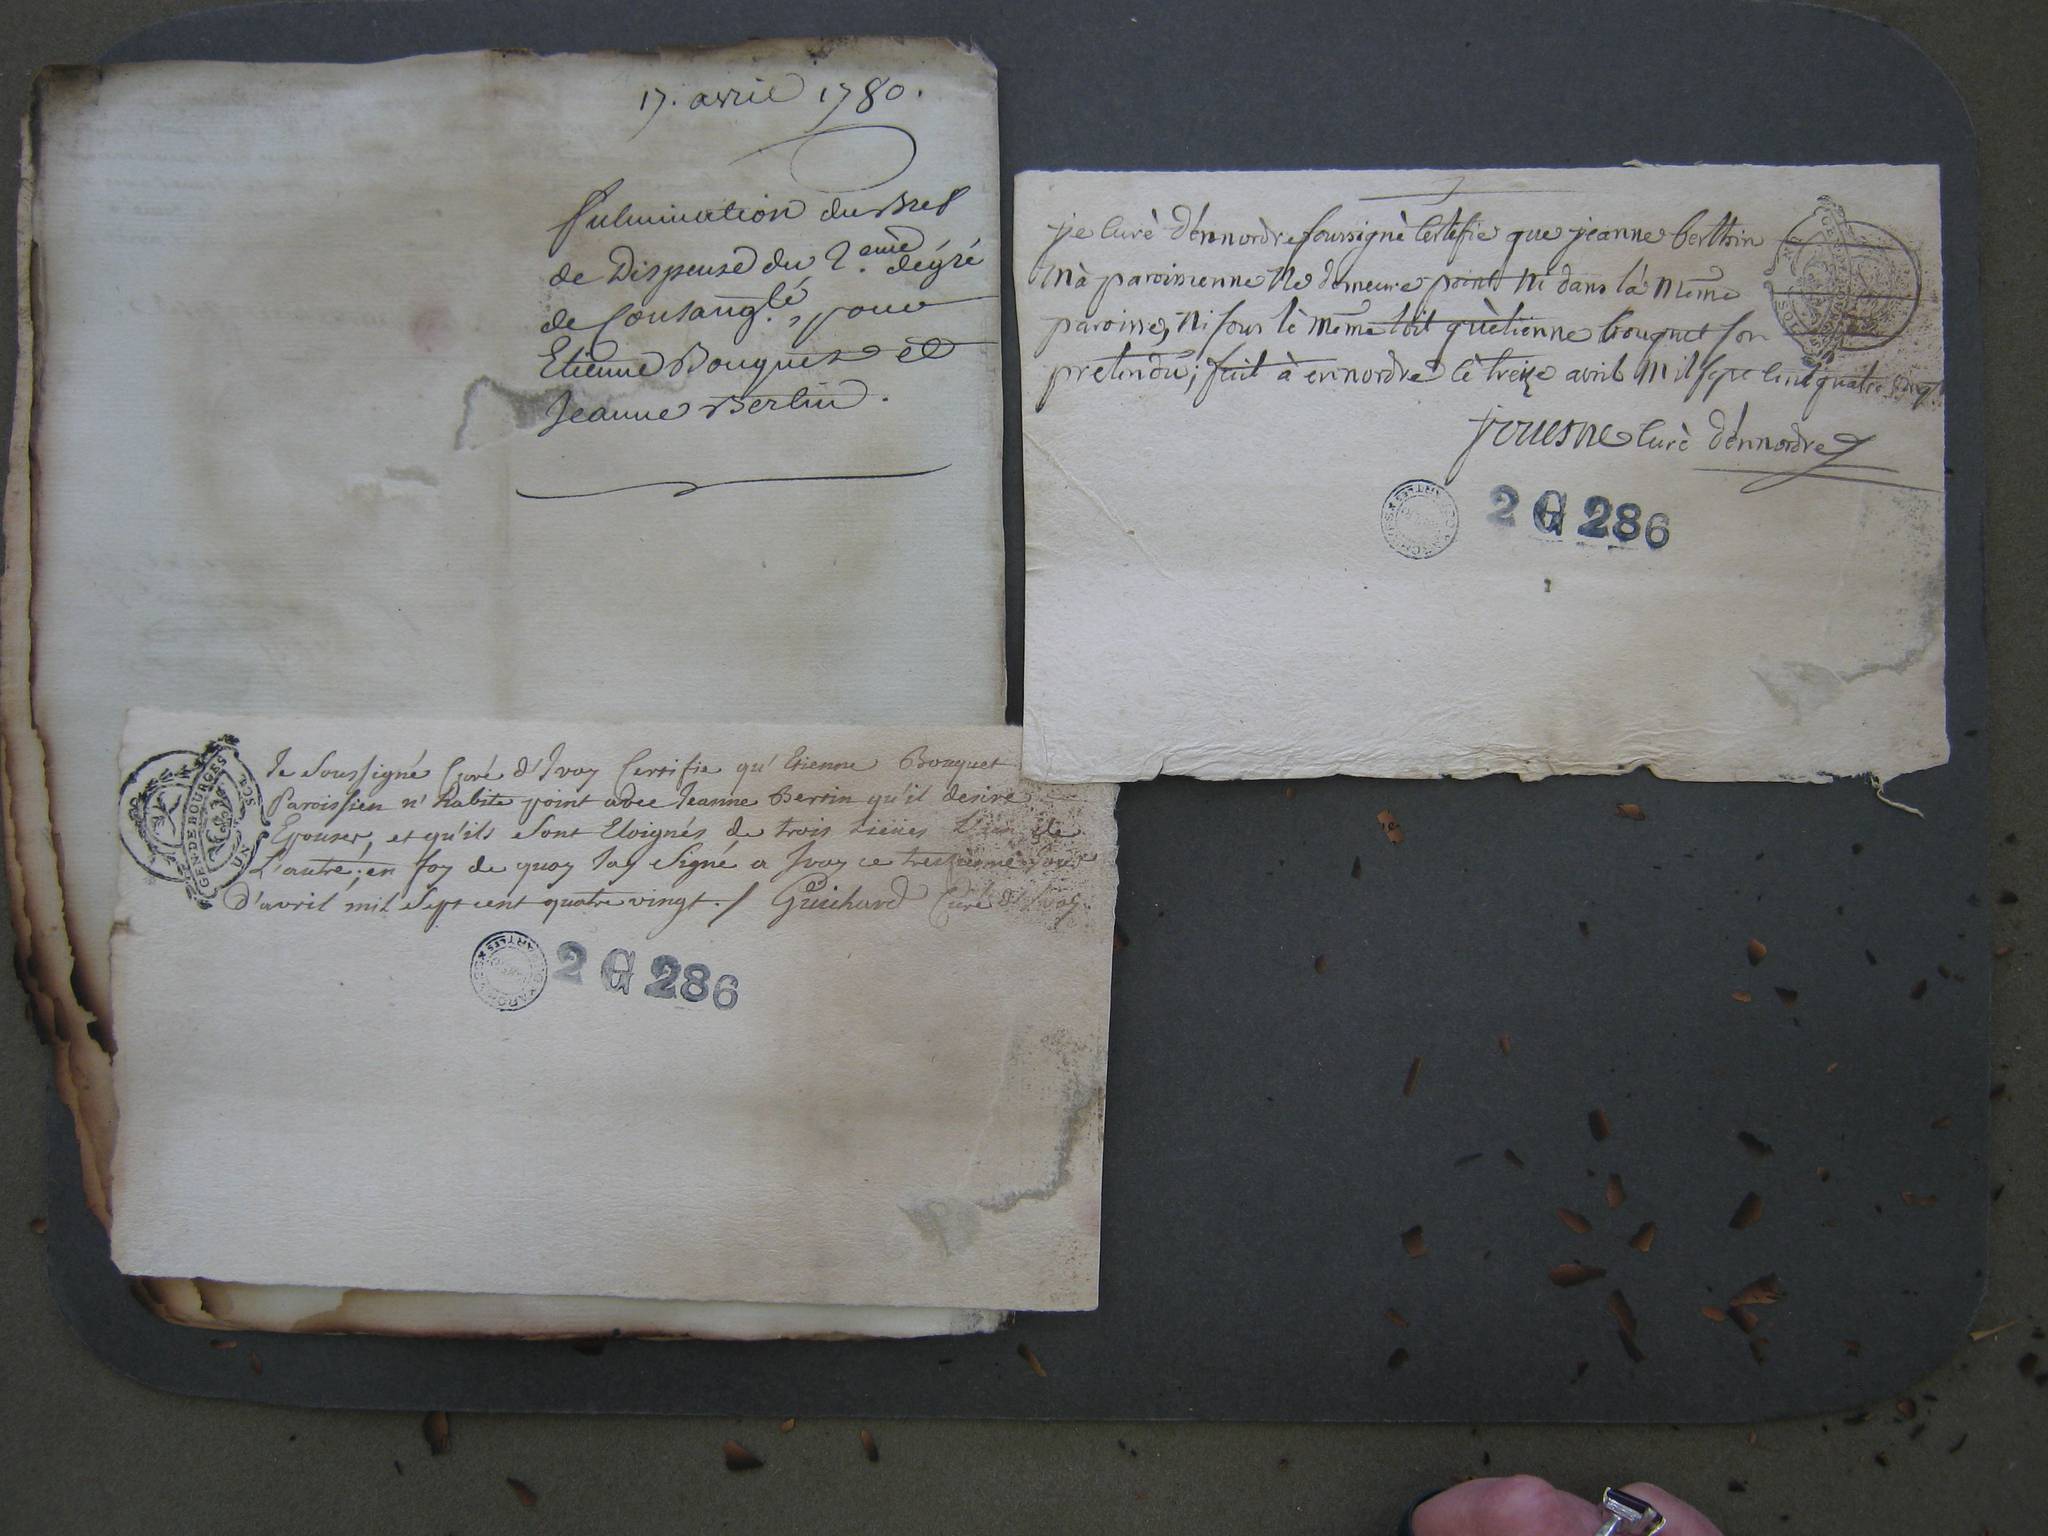 17. avril 1780.
fulmination du Bref
de Dispense du 2.eme dégré
de Consang.té, pour
Etienne Bouquet et
Jeanne Bertin.
je curè d'énnordre soussignè certifie que jeanne berthin
mà paroissienne ne demeure point ni dans là mème
paroisse, ni sous le mème toit qu'ètienne bouquet son
prètendù; fait à ennordre le treize avril mil sept cent quatre vingt.
jouesne curè d'énnordre
2 G 286
Je Soussigné Curé d'Ivoy Certifie qu'Etienne Bouquet
Paroissien n'habite point avec Jeanne Bertin qu'il desire
Epouser, et qu'ils sont Eloignés de trois Lieües L'un de
L'autre; en foy de quoy J'ay Signé a Ivoy ce treizieme Jour
D'avril mil Sept cent quatre vingt./ Guichard Curé d'Ivoy.
GEN DE BOURGES
UN SOL
2 G 286